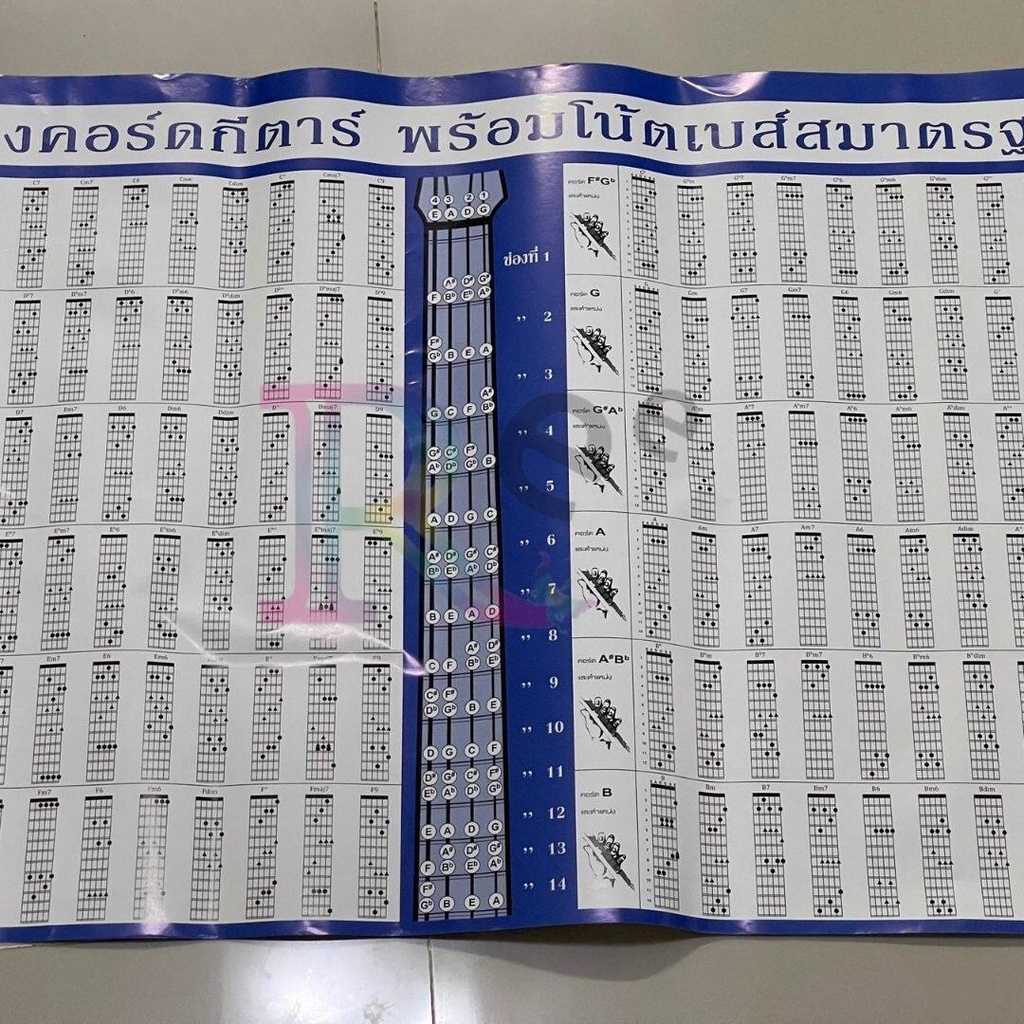 งคอร์ดกีตาร์ พร้อมโน้ตเบสสมาตรฐ
C7 Cm7 C6 Cm6 Cdim C⁺ Cmaj7 C9
4 3 2 1
E A D G
ช่องที่ 1
A# D# G#
F Bb Eb Ab
คอร์ด F#Gb
และตำแหน่ง
D♭7 D♭m7 D♭6 D♭m6 D♭dim D♭⁺ D♭maj7 D♭9
,, 2
F#
Gb B E A
คอร์ด G
และตำแหน่ง
G Gm G7 Gm7 G6 Gm6 Gdim G⁺
,, 3
A#
G C F Bb
D7 Dm7 D6 Dm6 Ddim D⁺ Dmaj7 D9
,, 4
G# C# F#
Ab Db Gb B
คอร์ด G#Ab
และตำแหน่ง
A♭m A♭7 A♭m7 A♭6 A♭m6 A♭dim A♭⁺
,, 5
A D G C
E♭7 E♭m7 E♭6 E♭m6 E♭dim E♭⁺ E♭maj7 E♭9
,, 6
A# D# G# C#
Bb Eb Ab Db
คอร์ด A
และตำแหน่ง
A Am A7 Am7 A6 Am6 Adim A⁺
,, 7
B E A D
,, 8
A# D#
C F Bb Eb
Em7 E6 Em6 E⁺ Emaj7 E9
,, 9
C# F#
Db Gb B E
คอร์ด A#Bb
และตำแหน่ง
B♭m B♭7 B♭m7 B♭6 B♭m6 B♭dim
,, 10
D G C F
,, 11
D# G# C# F#
Eb Ab Db Gb
Fm7 F6 Fm6 Fdim F⁺ Fmaj7 F9
,, 12
E A D G
คอร์ด B
และตำแหน่ง
B Bm B7 Bm7 B6 Bm6 Bdim
,, 13
A# D# G#
F Bb Eb Ab
,, 14
F#
Gb B E A